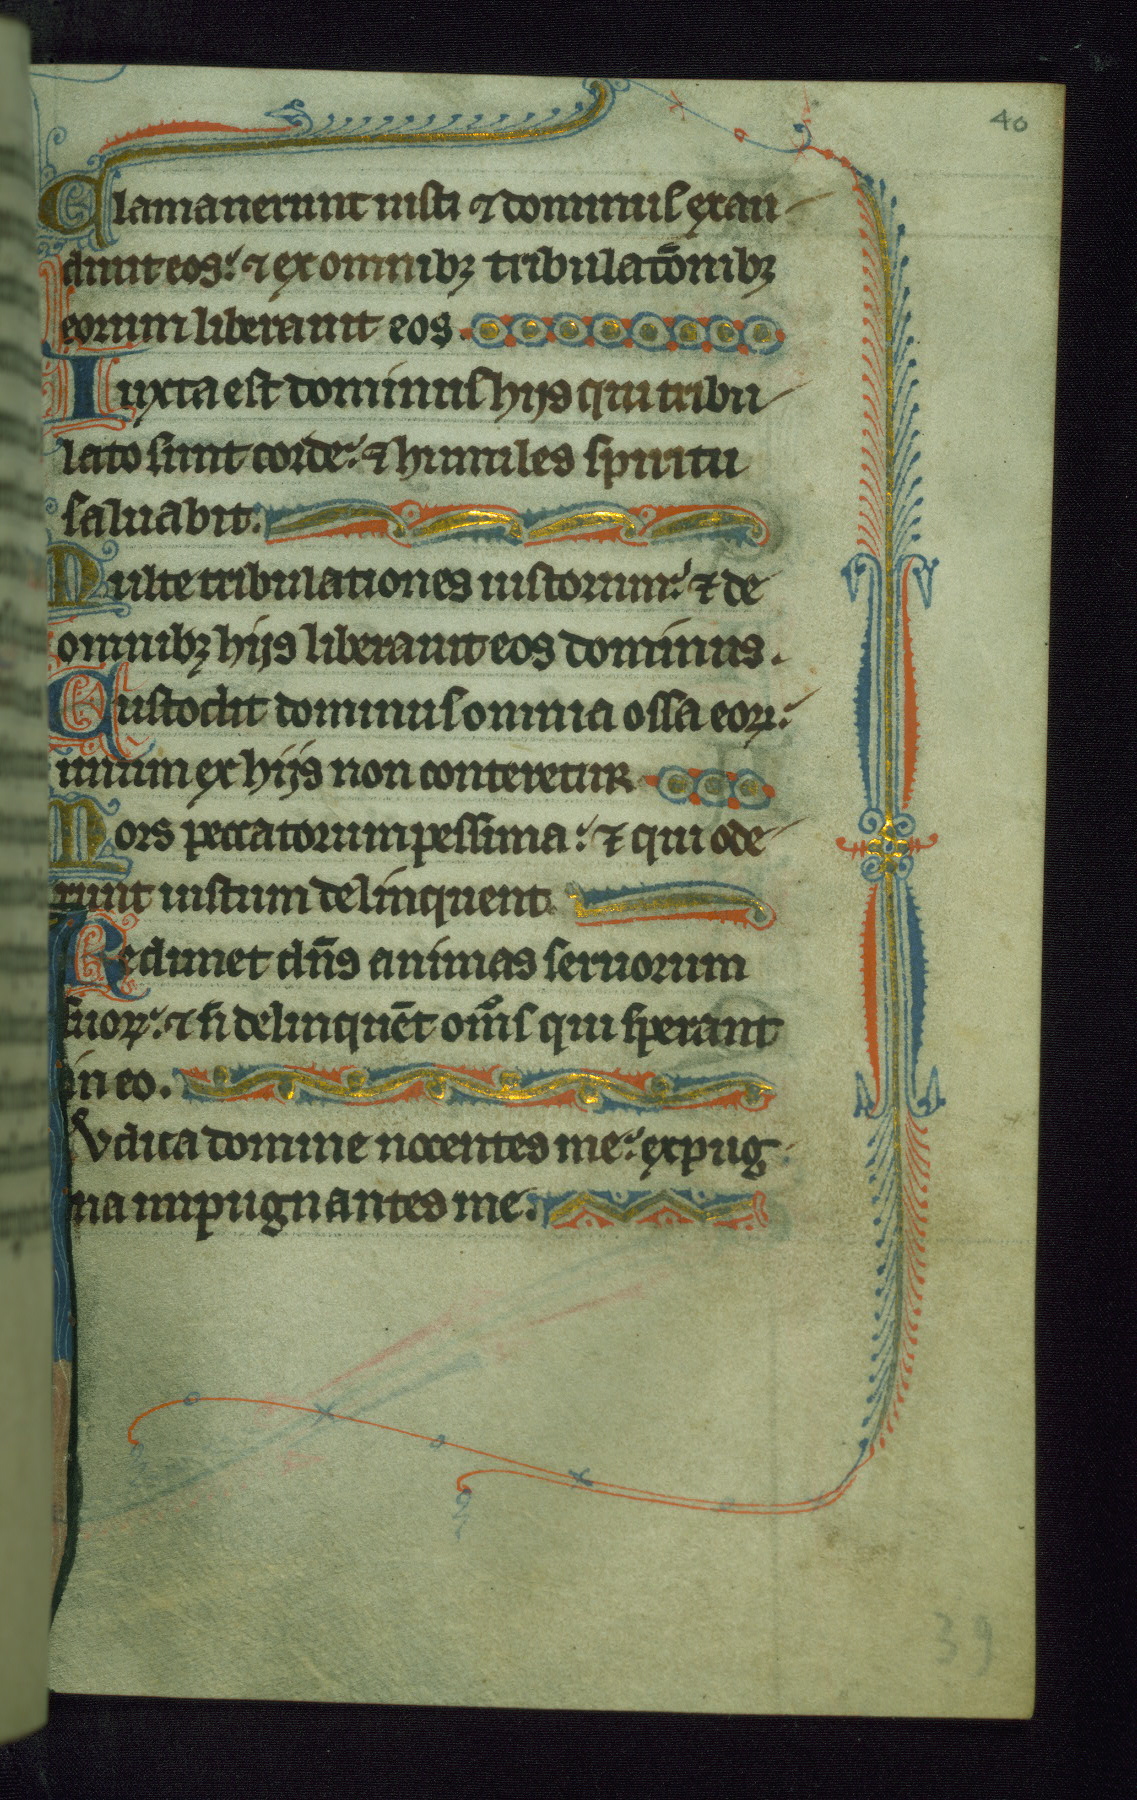 40
Clamauerunt iusti ⁊ dominus exau
diuit eos: ⁊ ex omnibꝫ tribulatōnibꝫ
eorum liberauit eos.
Iuxta est dominus hijs qui tribu
lato sunt corde: ⁊ humiles spiritu
saluabit.
Multe tribulationes iustorum: ⁊ de
omnibꝫ hijs liberauit eos dominus.
Custodit dominus omnia ossa eoꝝ:
unum ex hijs non conteretur
Mors peccatorum pessima: ⁊ qui ode
runt iustum delinquent
Redimet dn̄s animas seruorum
suoꝝ: ⁊ n̄ delinquēt om̄s qui sperant
in eo.
Iudica domine nocentes me: expug
na impugnantes me.
39